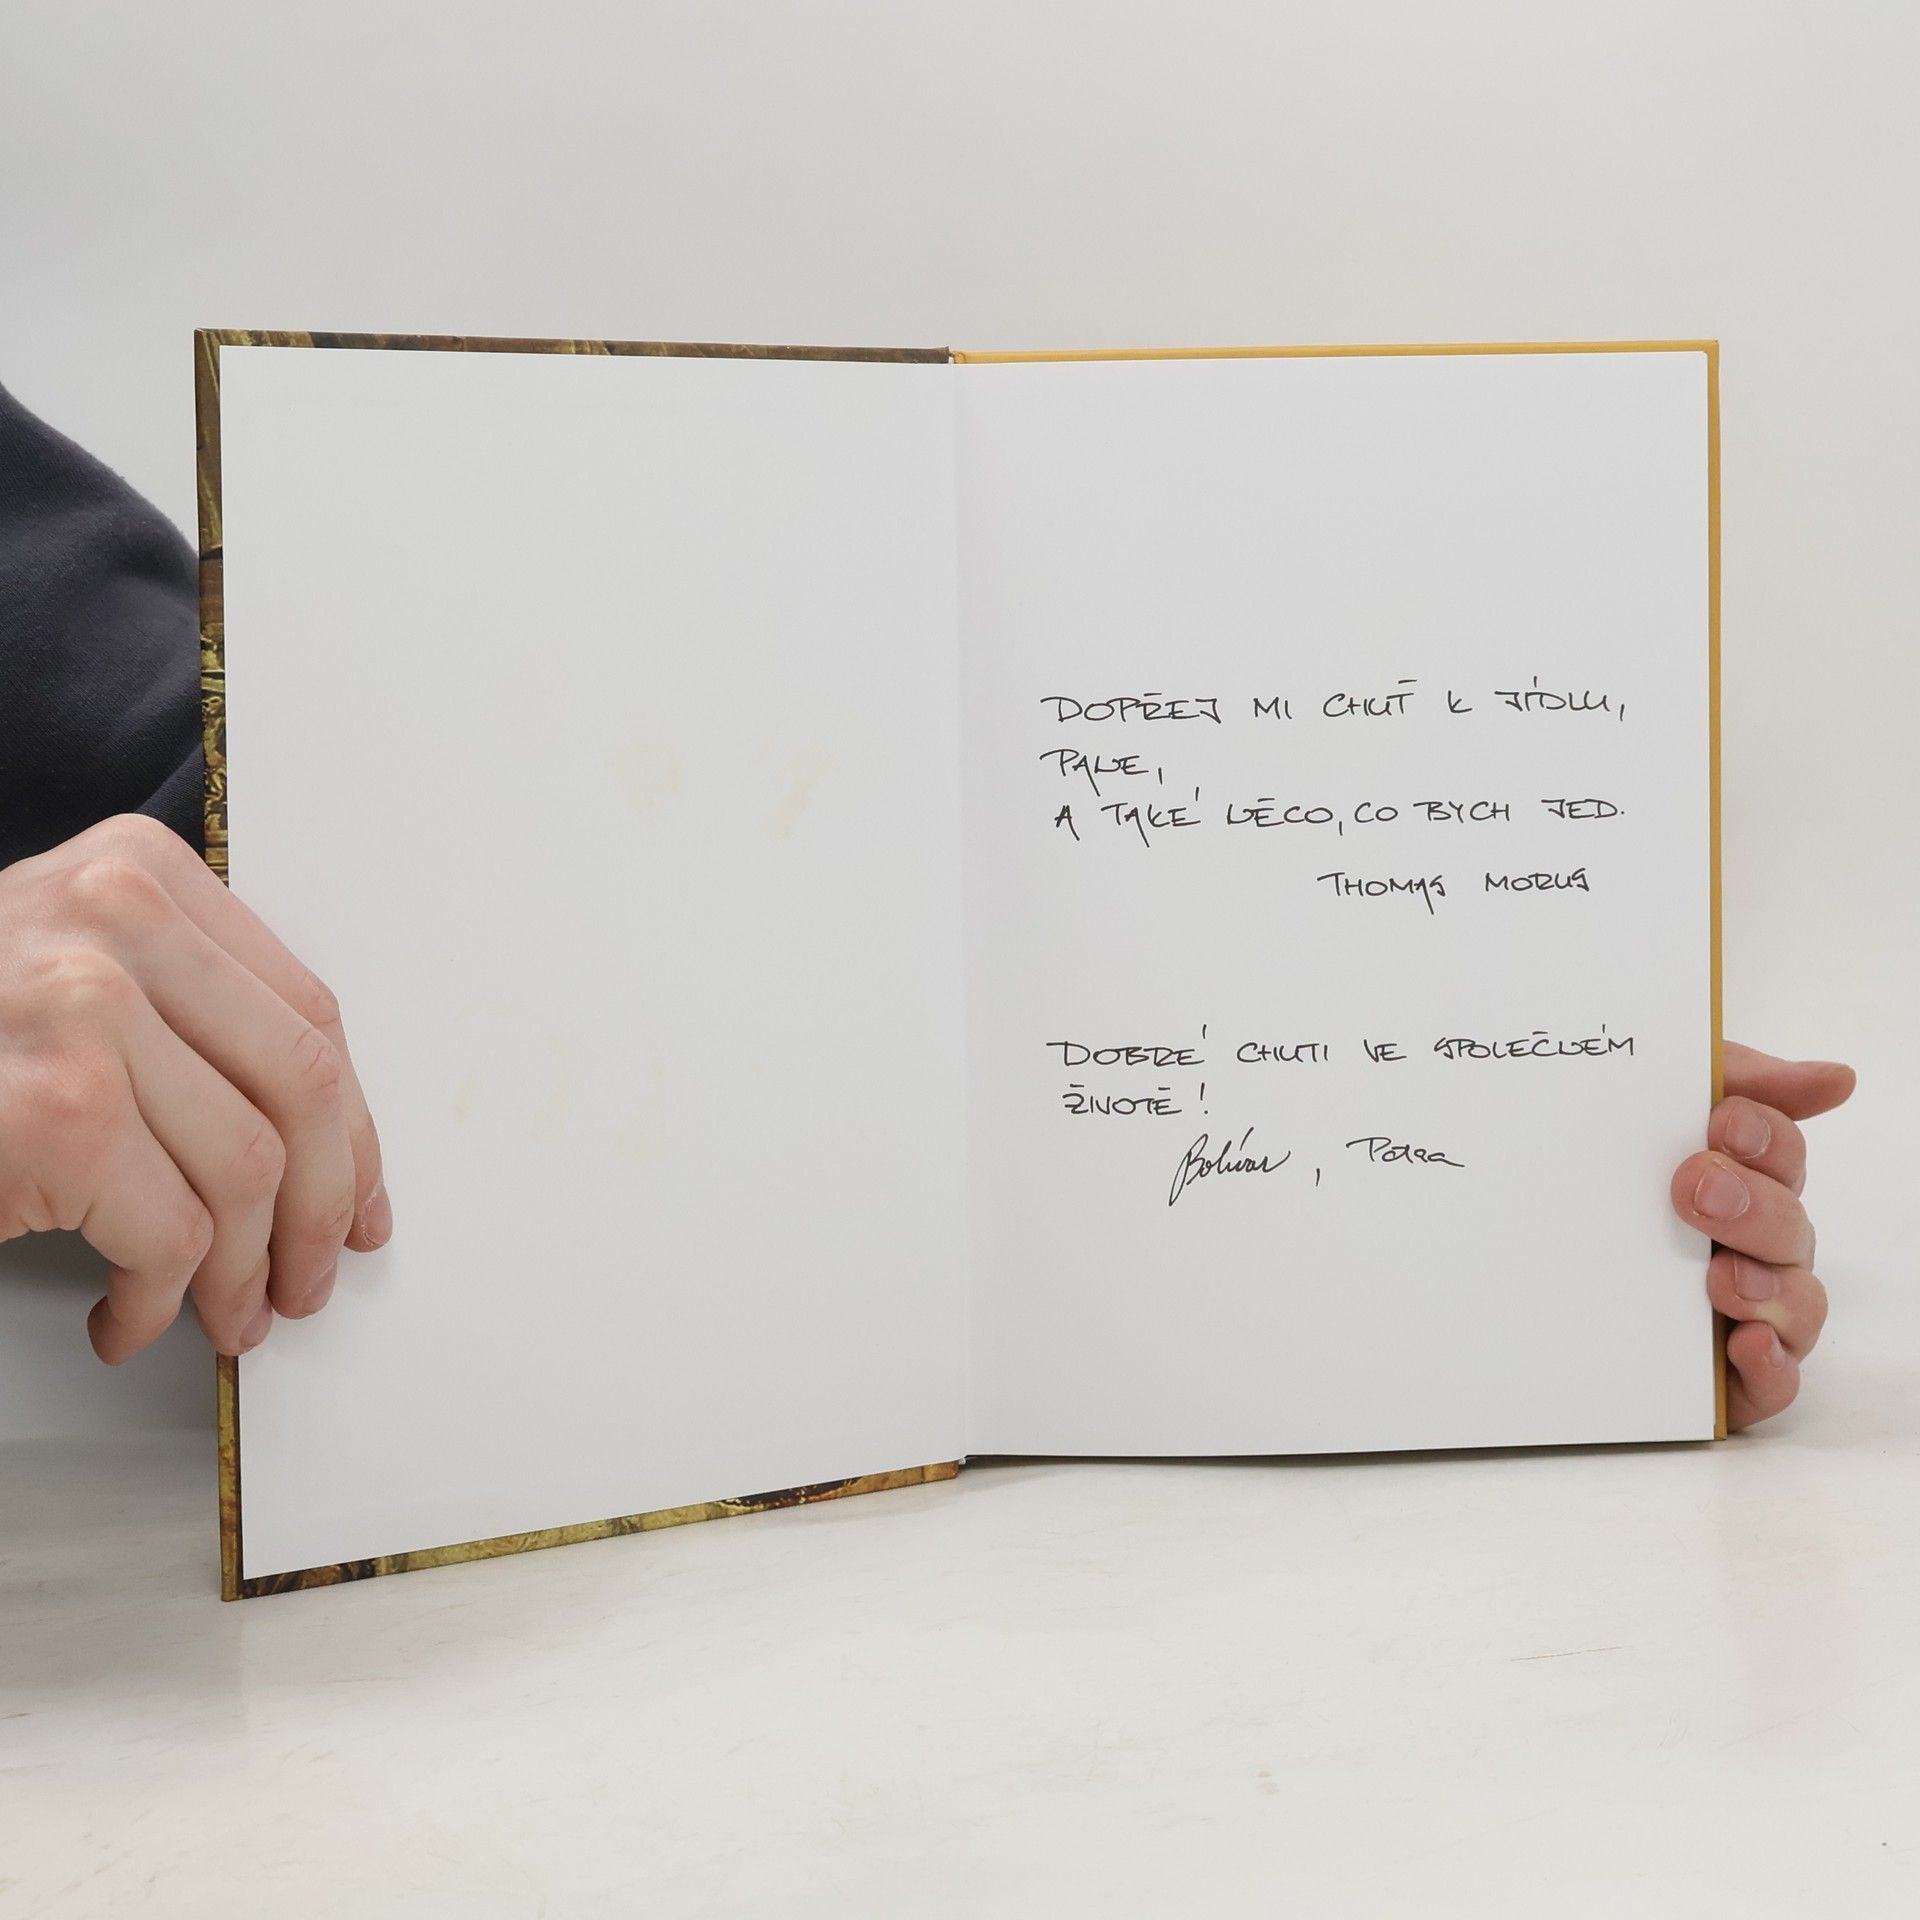 DOPŘEJ MI CHUŤ K JÍDLU,
PANE,
A TAKÉ NĚCO, CO BYCH JEDL.
THOMAS MORUS
DOBRÉ CHUTI VE SPOLEČNÉM
ŽIVOTĚ!
Bolívar, Petra